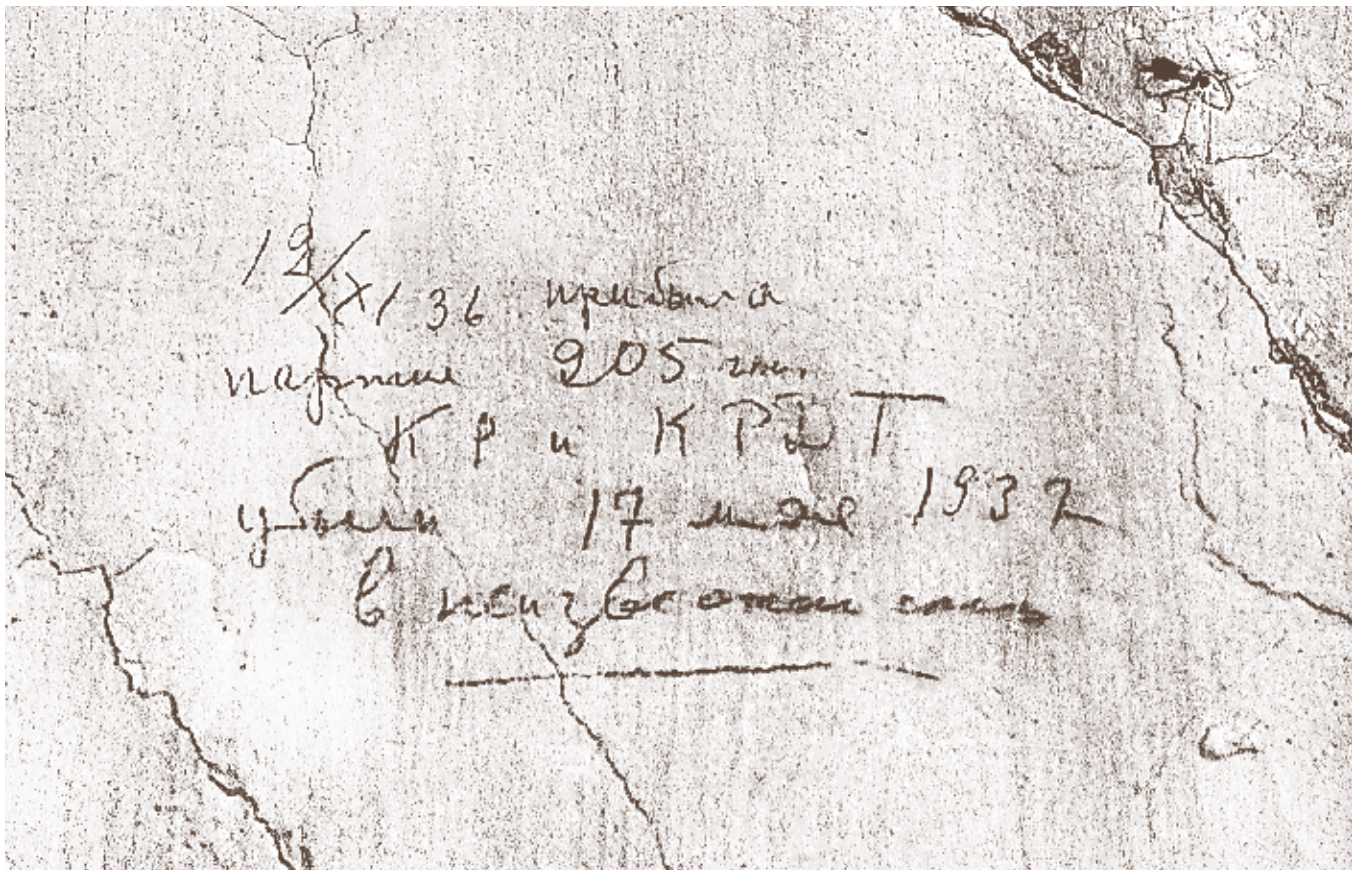 19/XI 36 прибыла
партия 205 чел.
КР и КРДТ
убыли 17 1937
в неизвестном